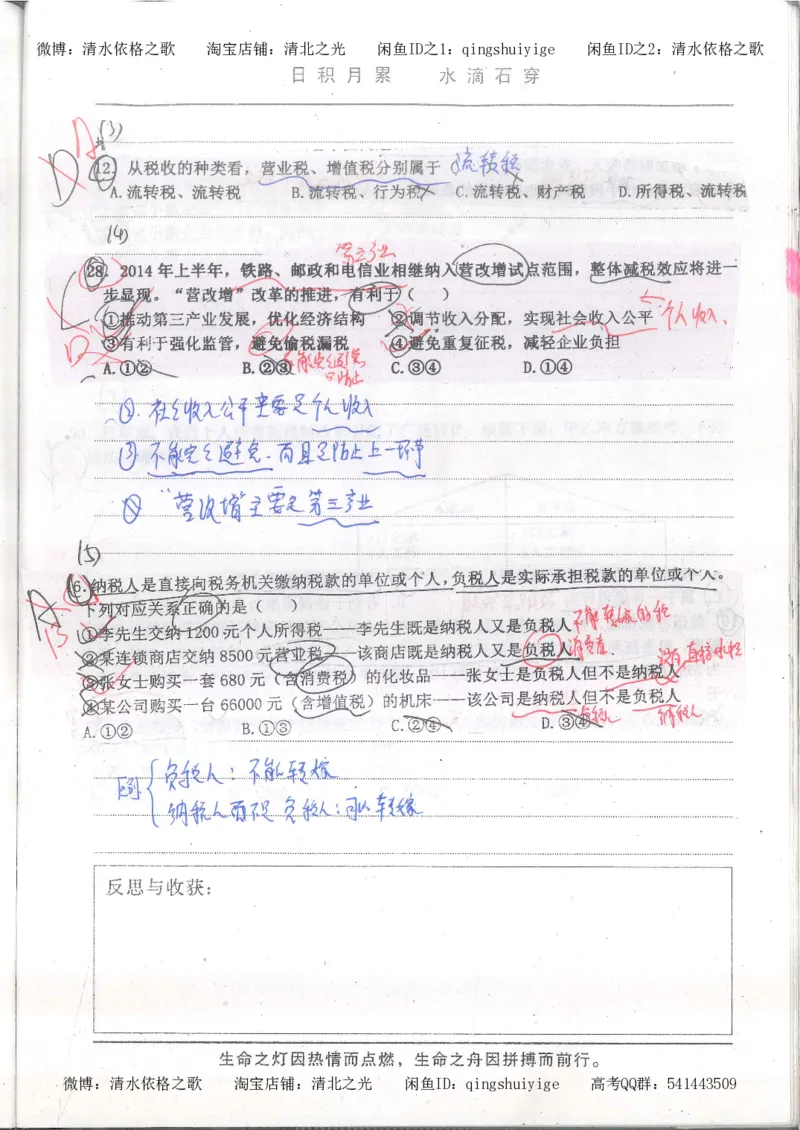 微博：清水依格之歌 淘宝店铺：清北之光 闲鱼ID之1：qingshuiyige 闲鱼ID之2：清水依格之歌
日积月累 水滴石穿
(3)
A
D
12. 从税收的种类看，营业税、增值税分别属于（流转税
A.流转税、流转税 B.流转税、行为税 C.流转税、财产税 D.所得税、流转税
(4)
第三产业
28. 2014年上半年，铁路、邮政和电信业相继纳入营改增试点范围，整体减税效应将进一
步显现。“营改增”改革的推进，有利于（ ）
①推动第三产业发展，优化经济结构 ②调节收入分配，实现社会收入公平 ←个人收入.
③有利于强化监管，避免偷税漏税 ④避免重复征税，减轻企业负担
D
A.①② B.②③ C.③④ D.①④
不能完全避免
只防止
②. 社会收入公平主要是个人收入
③ 不能完全避免.而且是防止上一环节
“营改增”主要是第三产业
(5)
A
6. 纳税人是直接向税务机关缴纳税款的单位或个人，负税人是实际承担税款的单位或个人。
下列对应关系正确的是（
B
①李先生交纳1200元个人所得税——李先生既是纳税人又是负税人
②某连锁商店交纳8500元营业税——该商店既是纳税人又是负税人 消费者.
③张女士购买一套680元（含消费税）的化妆品——张女士是负税人但不是纳税人
④某公司购买一台66000元（含增值税）的机床——该公司是纳税人但不是负税人
负税人 纳税人
A.①② B.①③ C.②④ D.③④
负税人：不能转嫁
纳税人而不是负税人：可以转嫁
反思与收获：
生命之灯因热情而点燃，生命之舟因拼搏而前行。
微博：清水依格之歌 淘宝店铺：清北之光 闲鱼ID：qingshuiyige 高考QQ群：541443509